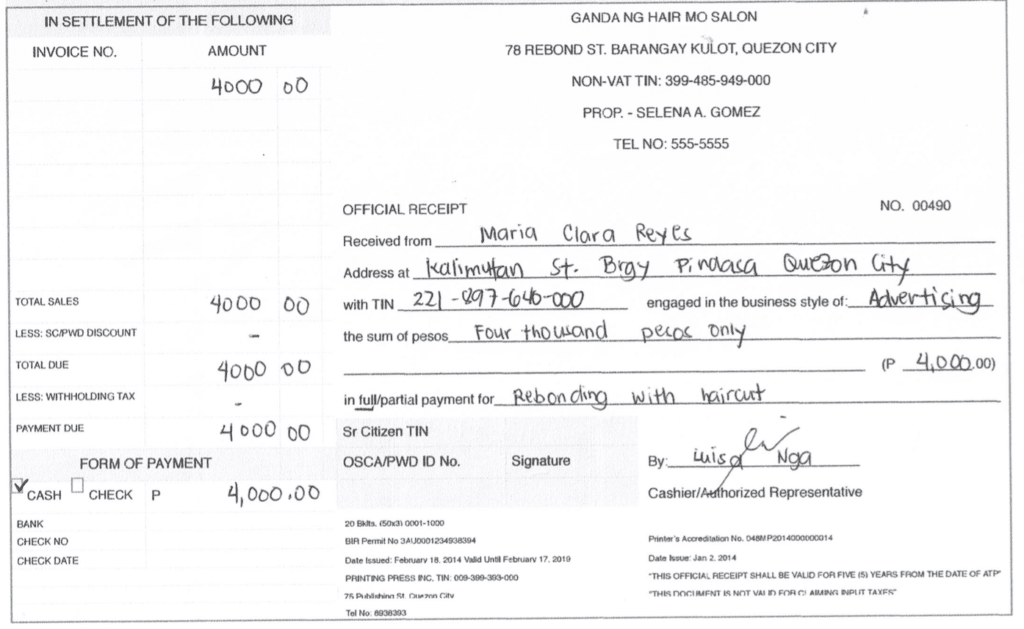 IN SETTLEMENT OF THE FOLLOWING
INVOICE NO. AMOUNT
4000 00
TOTAL SALES 4000 00
LESS: SC/PWD DISCOUNT -
TOTAL DUE 4000 00
LESS: WITHHOLDING TAX -
PAYMENT DUE 4000 00
FORM OF PAYMENT
CASH CHECK P 4,000.00
BANK
CHECK NO
CHECK DATE
GANDA NG HAIR MO SALON
78 REBOND ST. BARANGAY KULOT, QUEZON CITY
NON-VAT TIN: 399-485-949-000
PROP. - SELENA A. GOMEZ
TEL NO: 555-5555
OFFICIAL RECEIPT NO. 00490
Received from Maria Clara Reyes
Address at Kalimutan St. Brgy Pindasa Quezon City
with TIN 221-897-640-000 engaged in the business style of: Advertising
the sum of pesos Four thousand pesos only
(P 4,000.00)
in full/partial payment for Rebonding with haircut
Sr Citizen TIN
OSCA/PWD ID No. Signature
By: Luisa Nga
Cashier/Authorized Representative
20 Bklts. (50x3) 0001-1000
BIR Permit No 3AU0001234938394
Date Issued: February 18, 2014 Valid Until February 17, 2019
PRINTING PRESS INC. TIN: 009-399-393-000
75 Publishing St. Quezon City
Tel No: 8938393
Printer's Accreditation No. 048MP2014000000014
Date Issue: Jan 2, 2014
"THIS OFFICIAL RECEIPT SHALL BE VALID FOR FIVE (5) YEARS FROM THE DATE OF ATP"
"THIS DOCUMENT IS NOT VALID FOR CLAIMING INPUT TAXES"